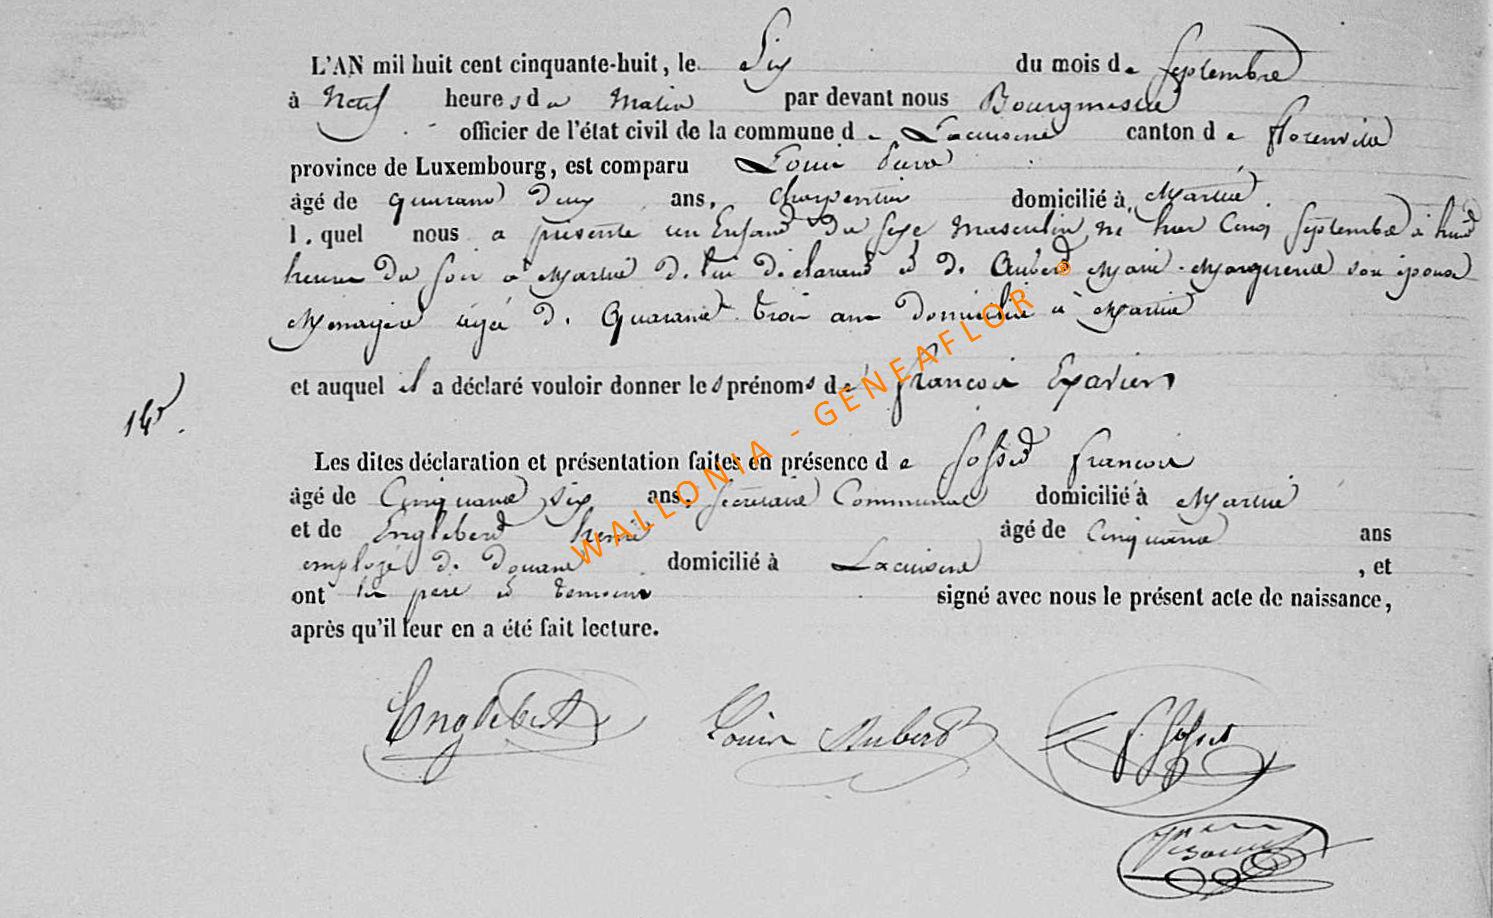 L'AN mil huit cent cinquante-huit, le Six du mois de Septembre
à Neuf heures du Matin par devant nous Bourgmestre
officier de l'état civil de la commune de Lacuisine canton de florenville
province de Luxembourg, est comparu Louis
âgé de quarante deux ans, charpentier domicilié à Martué
l. quel nous a présenté un Enfant du sexe Masculin né hier Cinq Septembre à huit
heures du soir à Martué de lui déclarant et de Aubert Marie Marguerite son épouse
Menagere agée de Quarante trois ans domiciliée à Martué
et auquel il a déclaré vouloir donner les prénoms de françois Exavier
14
Les dites déclaration et présentation faites en présence de Gosset françois
âgé de Cinquante six ans, secretaire Communal domicilié à Martué
et de Englebert henri âgé de Cinquante ans
employé de douane domicilié à Lacuisine , et
ont les père et temoins signé avec nous le présent acte de naissance,
après qu'il leur en a été fait lecture.
Englebert Louis Aubert f. Gosset
WALLONIA - GENEAFLOR